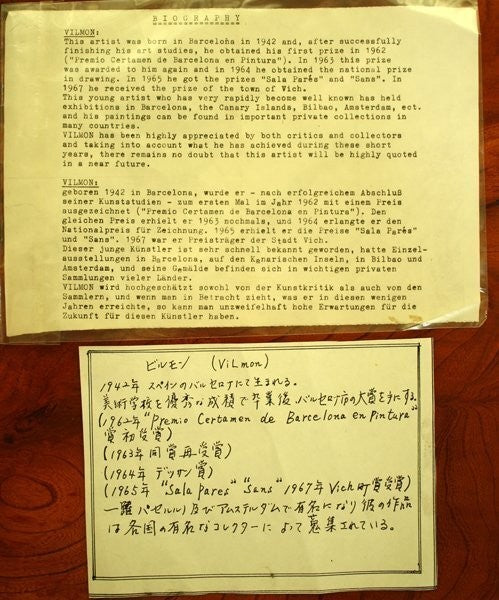 BIOGRAPHY
VILMON:
This artist was born in Barcelona in 1942 and, after successfully
finishing his art studies, he obtained his first prize in 1962
("Premio Certamen de Barcelona en Pintura"). In 1963 this prize
was awarded to him again and in 1964 he obtained the national prize
in drawing. In 1965 he got the prizes "Sala Parés" and "Sans". In
1967 he received the prize of the town of Vich.
This young artist who has very rapidly become well known has held
exhibitions in Barcelona, the Canary Islands, Bilbao, Amsterdam, ect.
and his paintings can be found in important private collections in
many countries.
VILMON has been highly appreciated by both critics and collectors
and taking into account what he has achieved during these short
years, there remains no doubt that this artist will be highly quoted
in a near future.
VILMON:
geboren 1942 in Barcelona, wurde er - nach erfolgreichem Abschluß
seiner Kunststudien - zum ersten Mal im Jahr 1962 mit einem Preis
ausgezeichnet ("Premio Certamen de Barcelona en Pintura"). Den
gleichen Preis erhielt er 1963 nochmals, und 1964 erlangte er den
Nationalpreis für Zeichnung. 1965 erhielt er die Preise "Sala Parés"
und "Sans". 1967 war er Preisträger der Stadt Vich.
Dieser junge Künstler ist sehr schnell bekannt geworden, hatte Einzel-
ausstellungen in Barcelona, auf den Kanarischen Inseln, in Bilbao und
Amsterdam, und seine Gemälde befinden sich in wichtigen privaten
Sammlungen vieler Länder.
VILMON wird hochgeschätzt sowohl von der Kunstkritik als auch von den
Sammlern, und wenn man in Betracht zieht, was er in diesen wenigen
Jahren erreichte, so kann man unzweifelhaft hohe Erwartungen für die
Zukunft für diesen Künstler haben.
ビルモン (ViLmon)
1942年 スペインのバルセロナにて生まれる。
美術学校を優秀な成績で卒業後、バルセロナ市の大賞を手にする。
(1962年 "Premio Certamen de Barcelona en Pintura"
賞初受賞)
(1963年 同賞再受賞)
(1964年 デッサン賞)
(1965年 "Sala Pares" "Sans" 1967年 Vich町賞受賞)
及びアムステルダムで有名になり彼の作品
は各国の有名なコレクターによって蒐集されている。